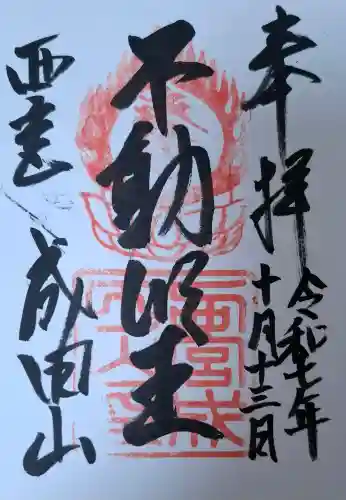 奉拝
令和七年
十月十三日
不動明王
西宮
成田山